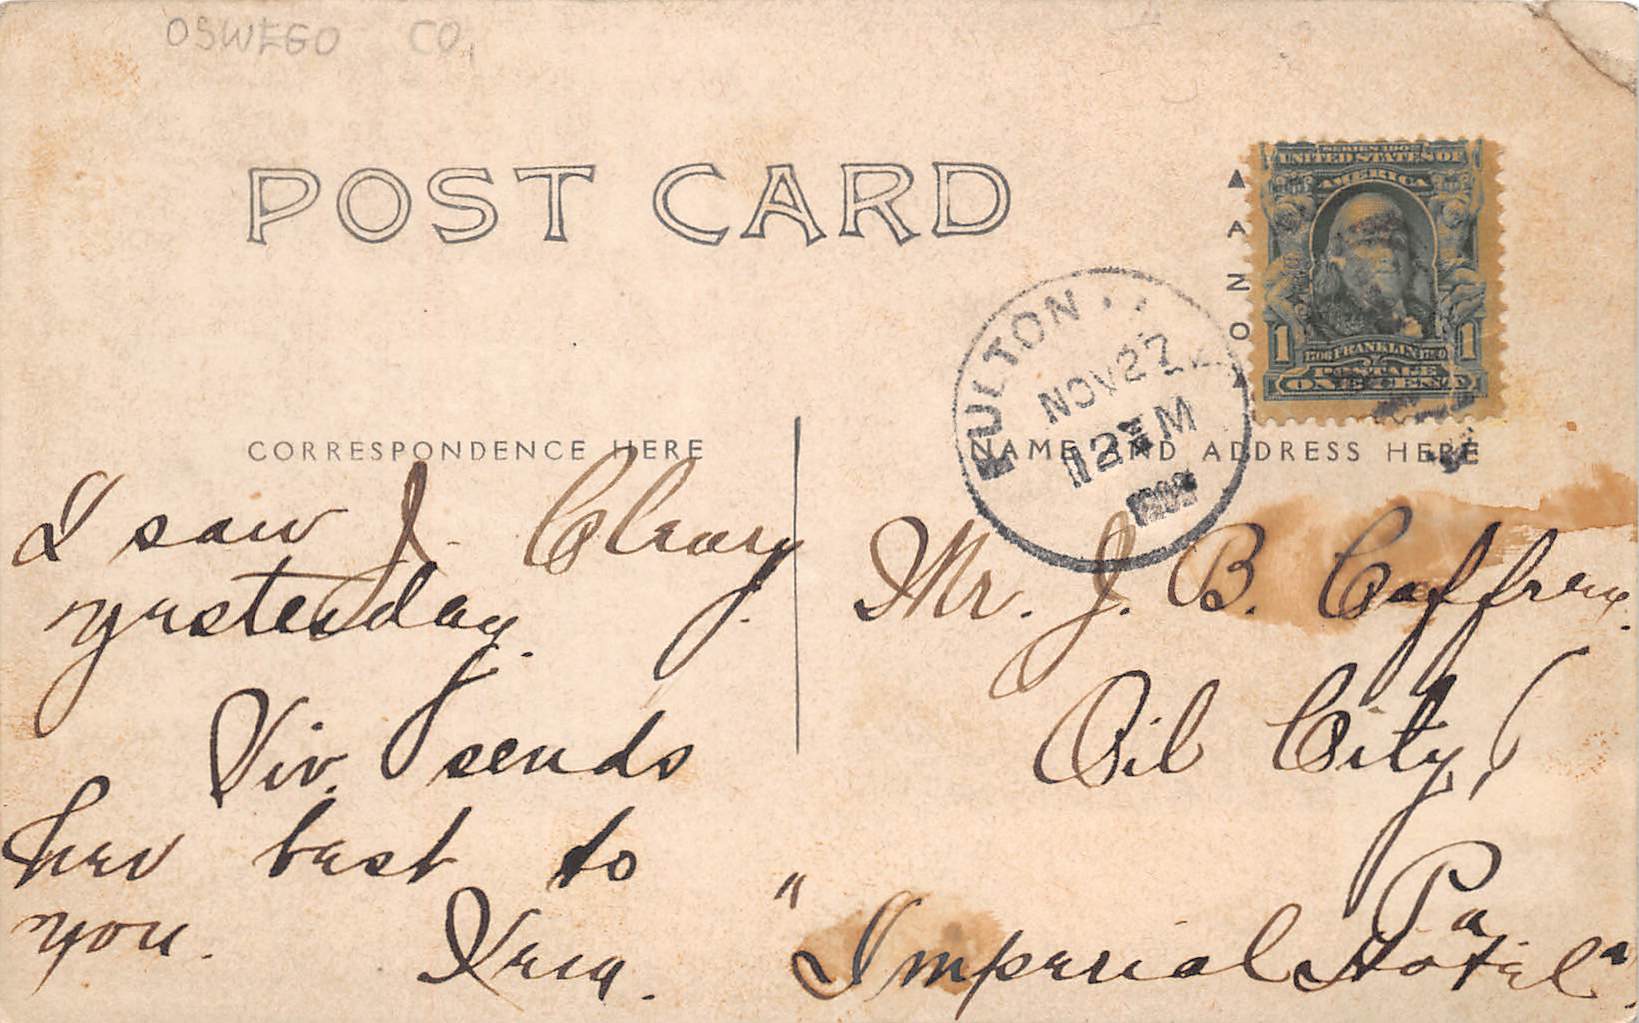 OSWEGO CO.
POST CARD
SERIES 1902
UNITED STATES OF
AMERICA
1706 FRANKLIN 1790
1 1
POSTAGE
ONE CENT
AZO
FULTON
NOV 27
12 M
CORRESPONDENCE HERE
NAME AND ADDRESS HERE
I saw J. Cleary
yesterday.
Viv. sends
her best to
you.
Mr. J. B. Caffrey.
Oil City,
Pa
"Imperial Hotel"